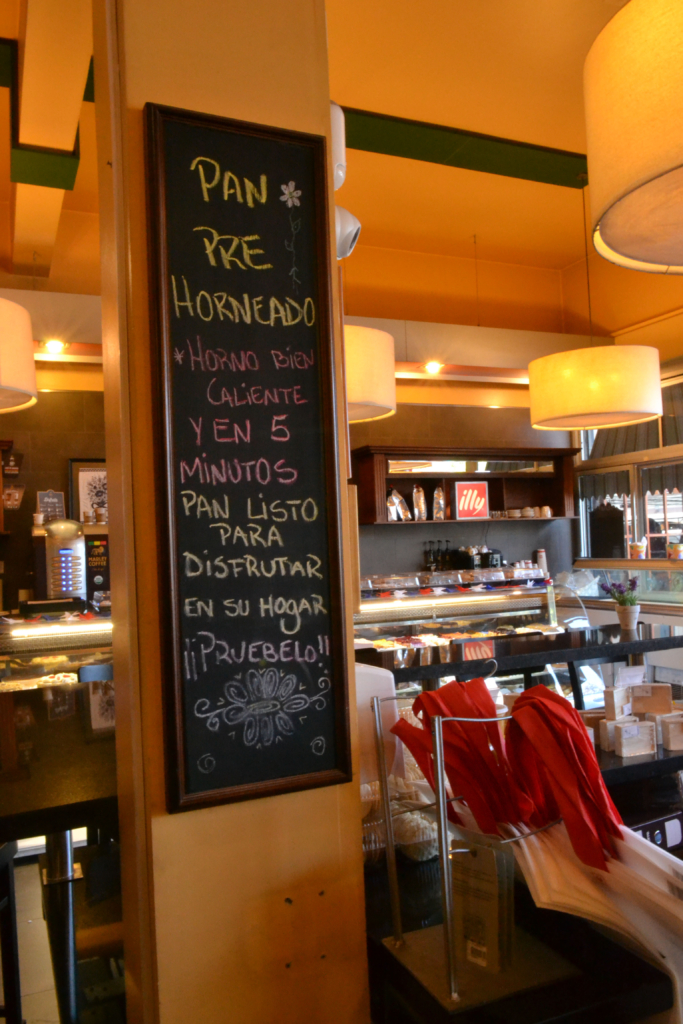 PAN
PRE
HORNEADO
*HORNO BIEN
CALIENTE
Y EN 5
MINUTOS
PAN LISTO
PARA
DISFRUTAR
EN SU HOGAR
¡¡PRUEBELO!!
illy